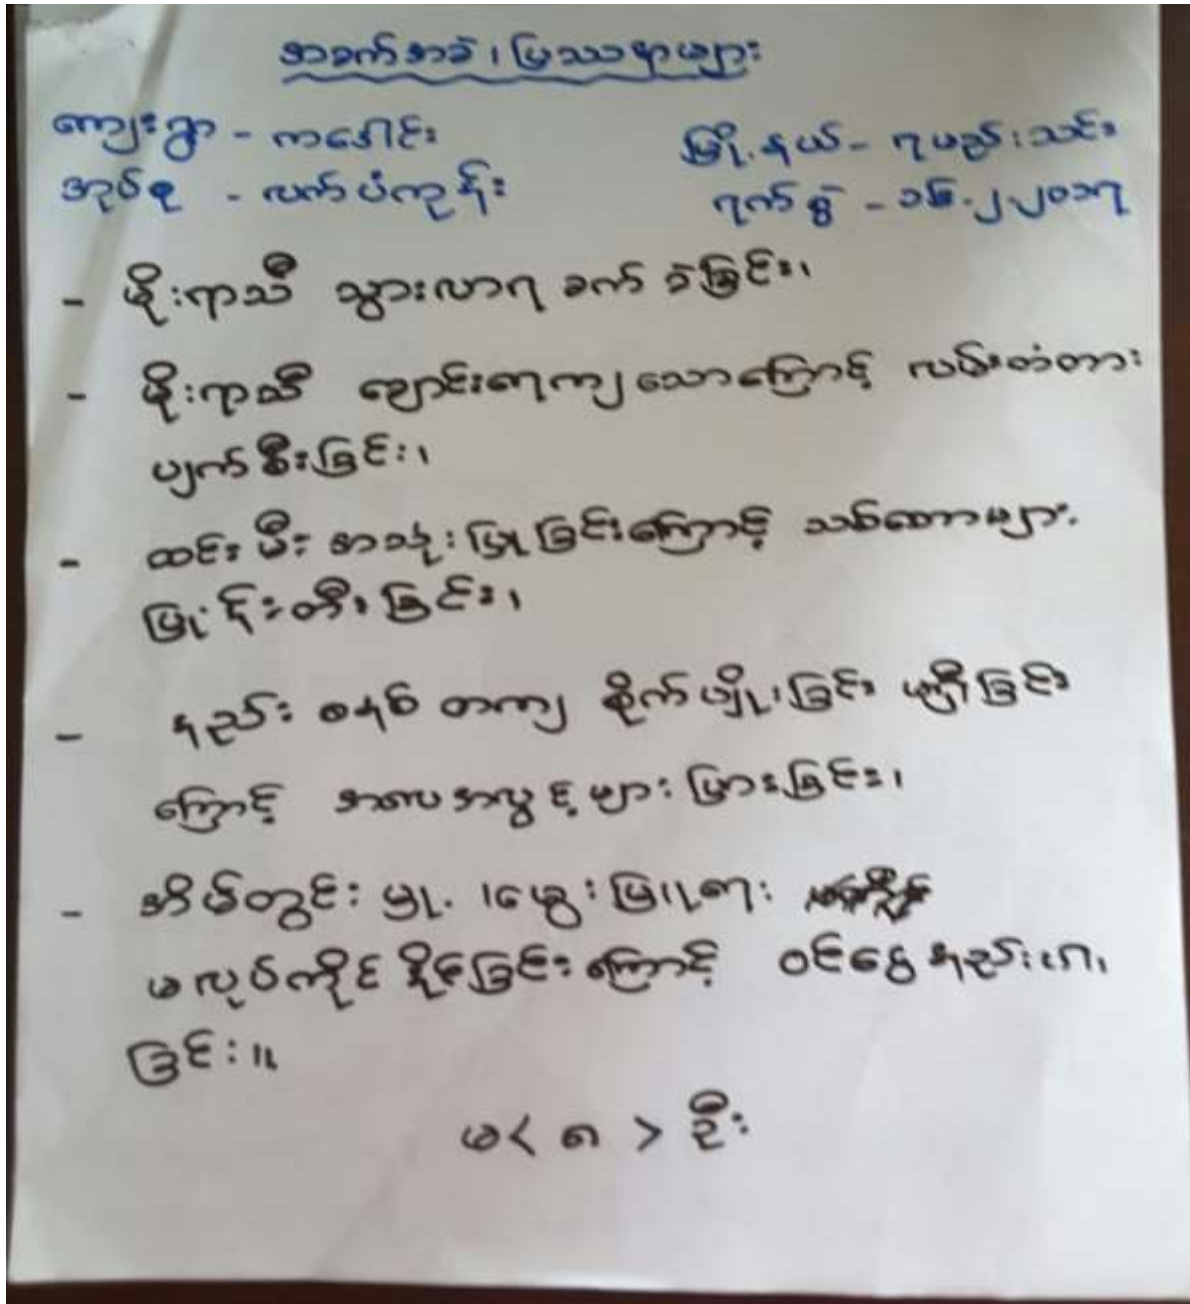 အခက်အခဲ၊ ပြဿနာများ
ကျေးရွာ - ကဒေါင်း မြို့နယ် - ရမည်းသင်း
အုပ်စု - လက်ပံကုန်း ရက်စွဲ - ၁၆.၂.၂၀၁၇
- မိုးရာသီ သွားလာရ ခက်ခဲခြင်း၊
- မိုးရာသီ ချောင်းရေကျသောကြောင့် လမ်းတံတား
ပျက်စီးခြင်း၊
- ထင်းမီးအသုံးပြုခြင်းကြောင့် သစ်တောများ
ပြုန်းတီးခြင်း၊
- နည်းစနစ်တကျ စိုက်ပျိုးခြင်း မရှိခြင်း
ကြောင့် အလေအလွင့်များပြားခြင်း၊
- အိမ်တွင်းမှု၊ မွေးမြူရေး
မလုပ်ကိုင်နိုင်ခြင်းကြောင့် ဝင်ငွေနည်းပါး
ခြင်း။
မ < ၈ > ဦး